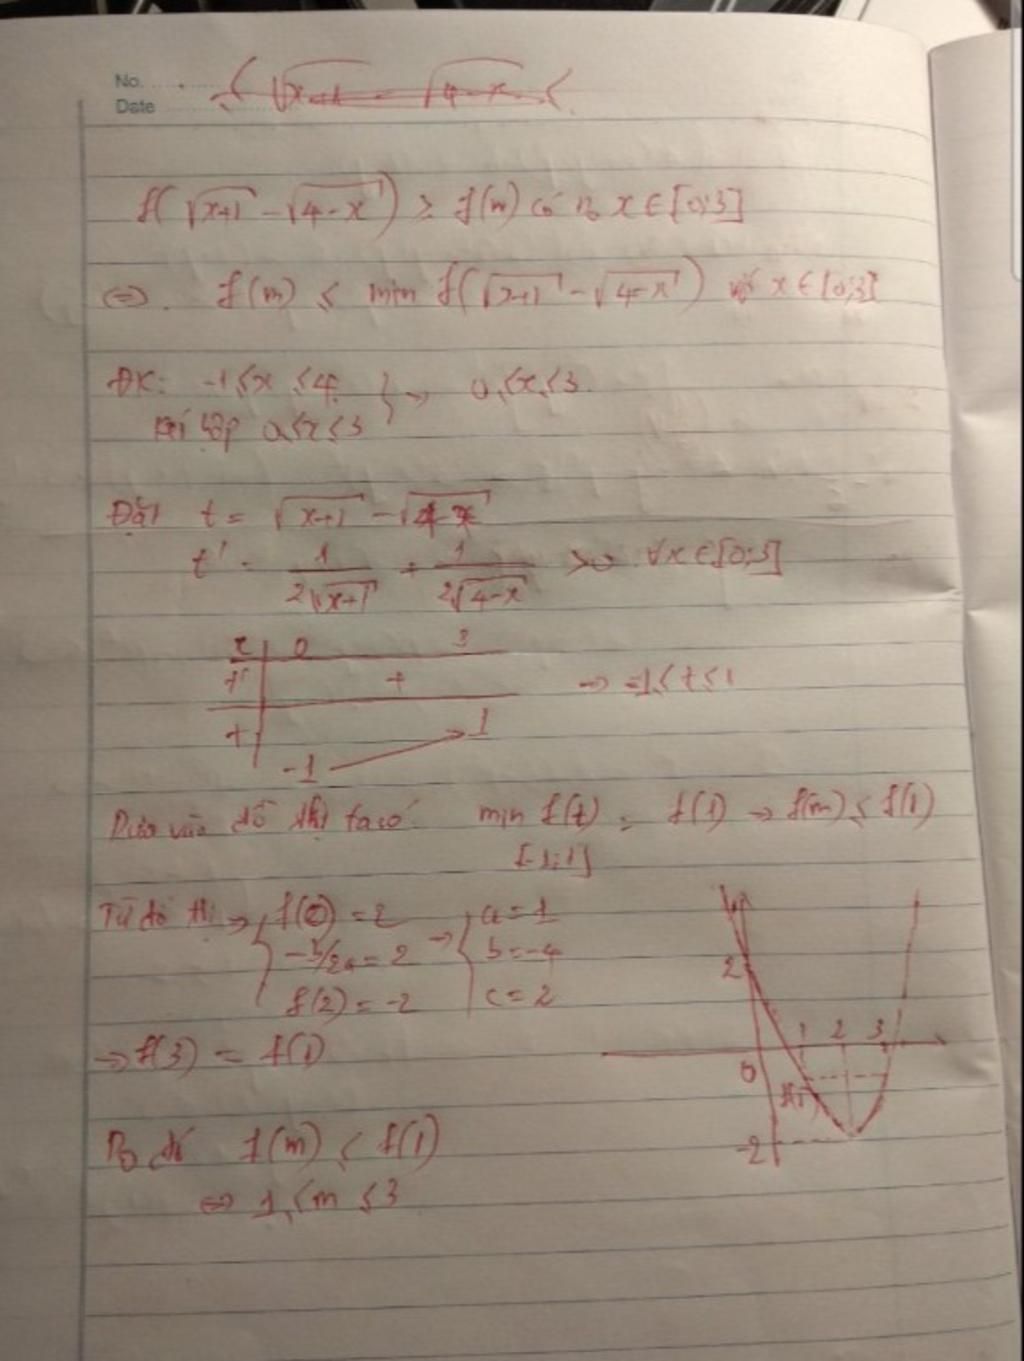 No.
Date
≤ √x+1 - √4-x ≤
f(√x+1 - √4-x) ≥ f(m) có no x ∈ [0;3]
⇔ f(m) ≤ min f(√x+1 - √4-x) với x ∈ [0;3]
ĐK: -1≤x≤4 } → 0≤x≤3
Kết hợp 0≤x≤3
Đặt t = √x+1 - √4-x
t' = 1/2√x+1 + 1/2√4-x >0 ∀x∈[0;3]
x 0 3
t' + → -1≤t≤1
t -1 1
Dựa vào đồ thị ta có min f(t) = f(1) → f(m) ≤ f(1)
[-1;1]
Từ đồ thị → { f(0) = 2 → { a=1
-b/2a = 2 b=-4
f(2) = -2 c=2
→ f(3) = f(1)
Do đó f(m) ≤ f(1)
⇔ 1≤m≤3
2
1 2 3
0
f(1)
-2